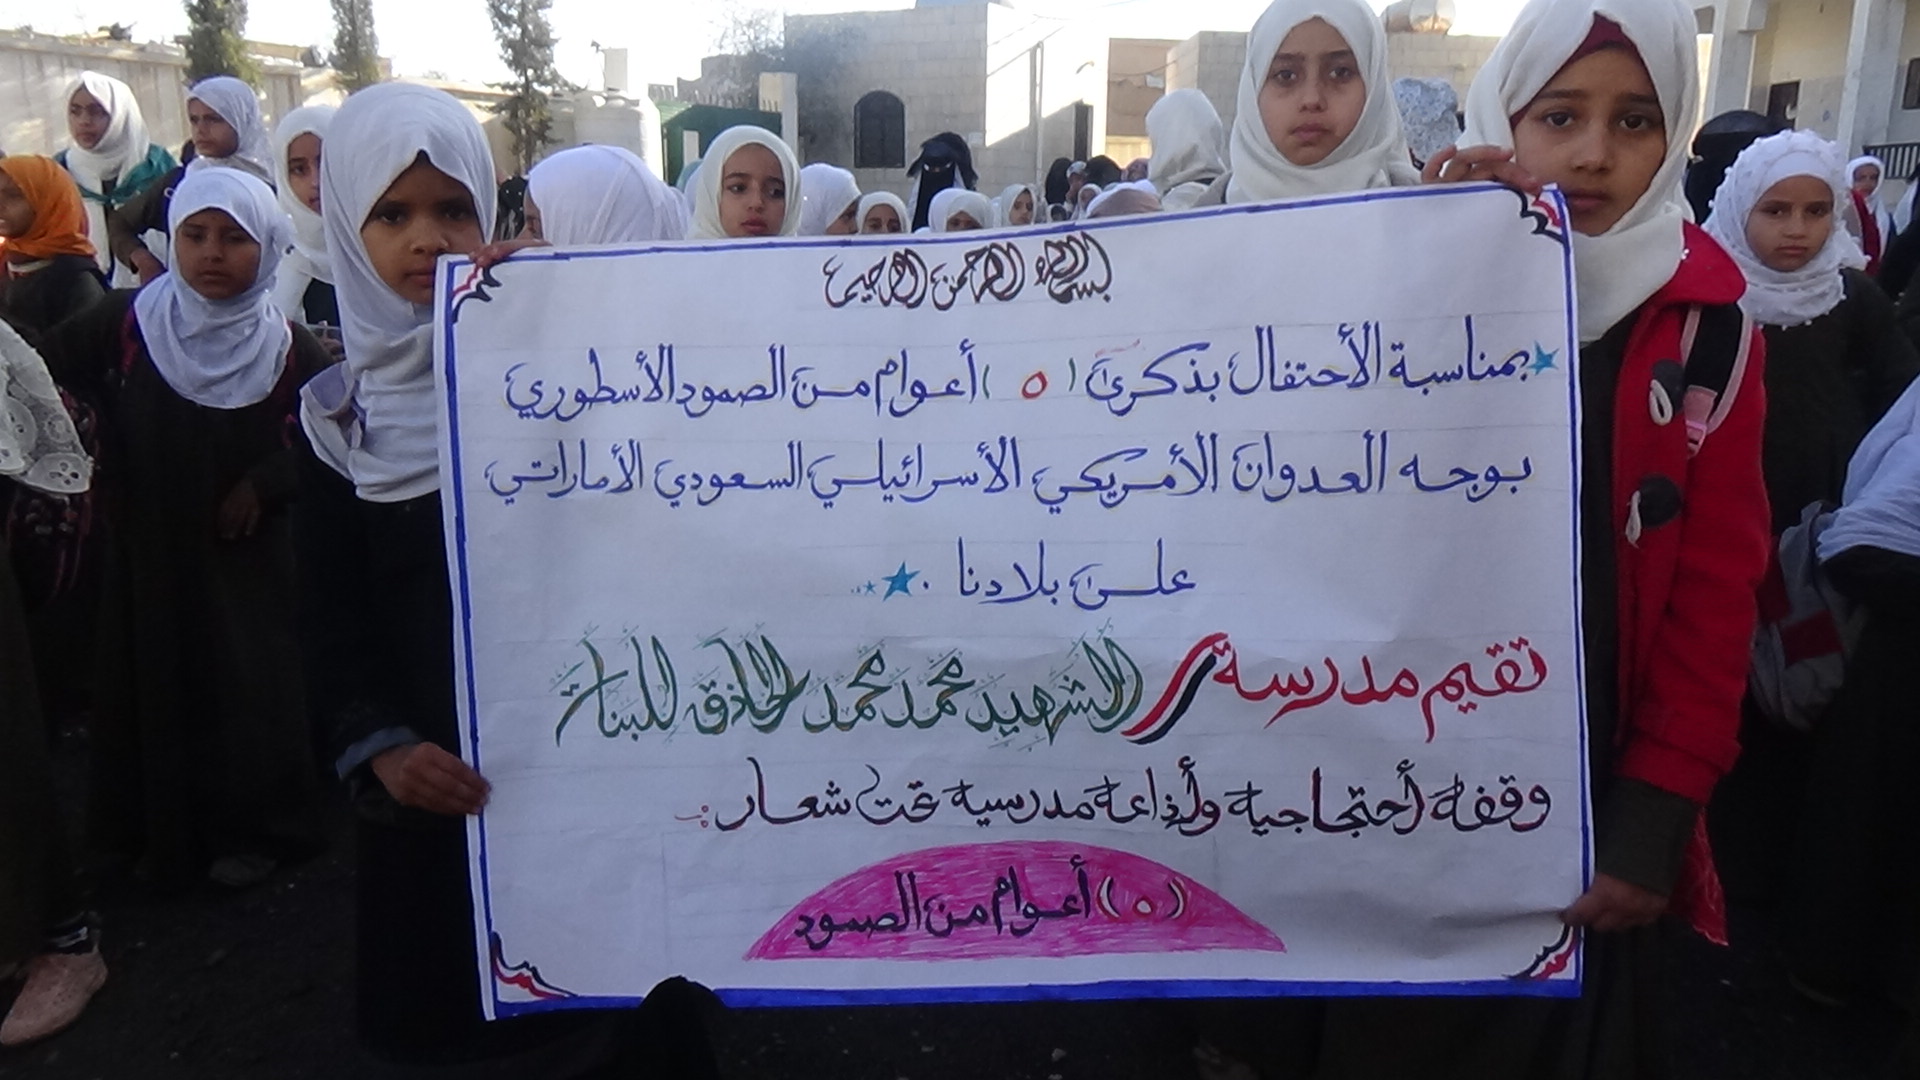 بسم الله الرحمن الرحيم
بمناسبة الأحتفال بذكرى (٥) أعوام من الصمود الأسطوري
بوجه العدوان الأمريكي الأسرائيلي السعودي الأماراتي
على بلادنا
تقيم مدرسة / الشهيد محمد محمد الحاذق للبنات
وقفة أحتجاجية وأذاعة مدرسية تحت شعار :
(٥) أعوام من الصمود